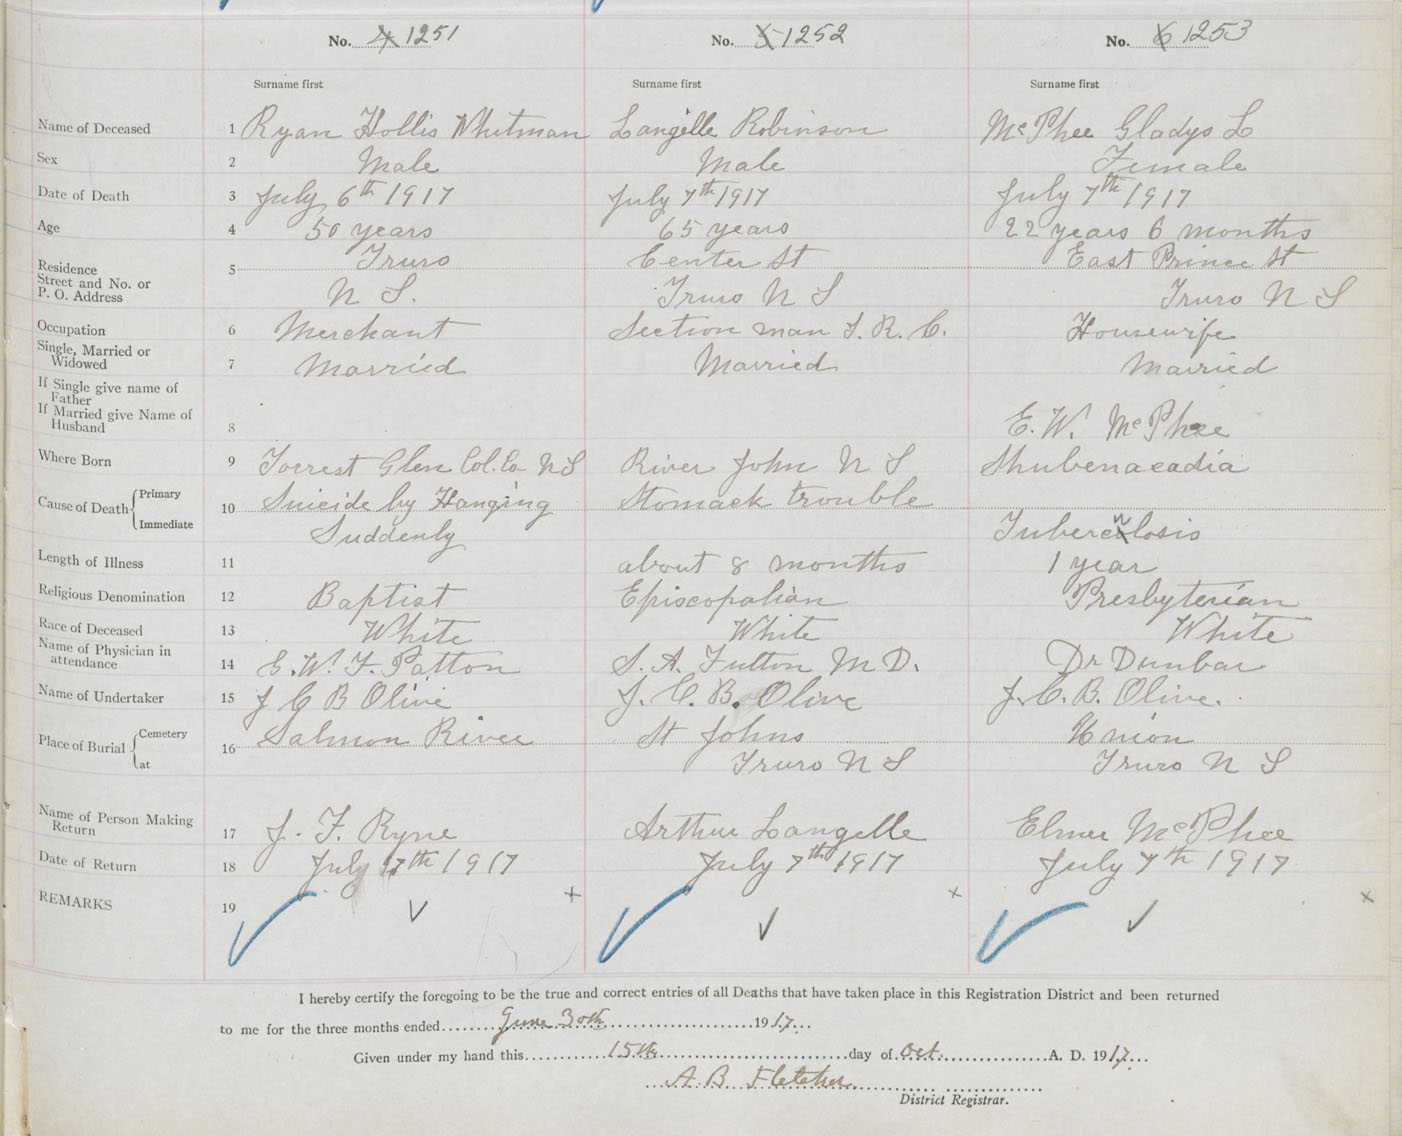 No. 4 1251 No. 5 1252 No. 6 1253
Surname first Surname first Surname first
Name of Deceased 1 Ryan Hollis Whitman Langille Robinson McPhee Gladys L
Sex 2 Male Male Female
Date of Death 3 July 6th 1917 July 7th 1917 July 7th 1917
Age 4 50 years 65 years 22 years 6 months
Residence 5 Truro Center St East Prince St
Street and No. or
P. O. Address N S. Truro N S Truro N S
Occupation 6 Merchant Section man I. R. C. Housewife
Single, Married or
Widowed 7 Married Married Married
If Single give name of
Father
If Married give Name of
Husband 8 E. W. McPhee
Where Born 9 Forest Glen Col. Co N S River John N S Shubenacadia
Cause of Death Primary 10 Suicide by Hanging Stomack trouble
Immediate Suddenly Tuberculosis
Length of Illness 11 about 8 months 1 year
Religious Denomination 12 Baptist Episcopalian Presbyterian
Race of Deceased 13 White White White
Name of Physician in
attendance 14 E. W. F. Patton S. A. Fulton M D. Dr Dunbar
Name of Undertaker 15 J C B Olive J. C. B. Olive J. C. B. Olive.
Place of Burial Cemetery 16 Salmon River St Johns Union
at Truro N S Truro N S
Name of Person Making
Return 17 J. F. Ryne Arthur Langille Elmer McPhee
Date of Return 18 July 7th 1917 July 7th 1917 July 7th 1917
REMARKS 19
I hereby certify the foregoing to be the true and correct entries of all Deaths that have taken place in this Registration District and been returned
to me for the three months ended June 30th 1917
Given under my hand this 15th day of Oct. A. D. 1917
A. B. Fletcher
District Registrar.